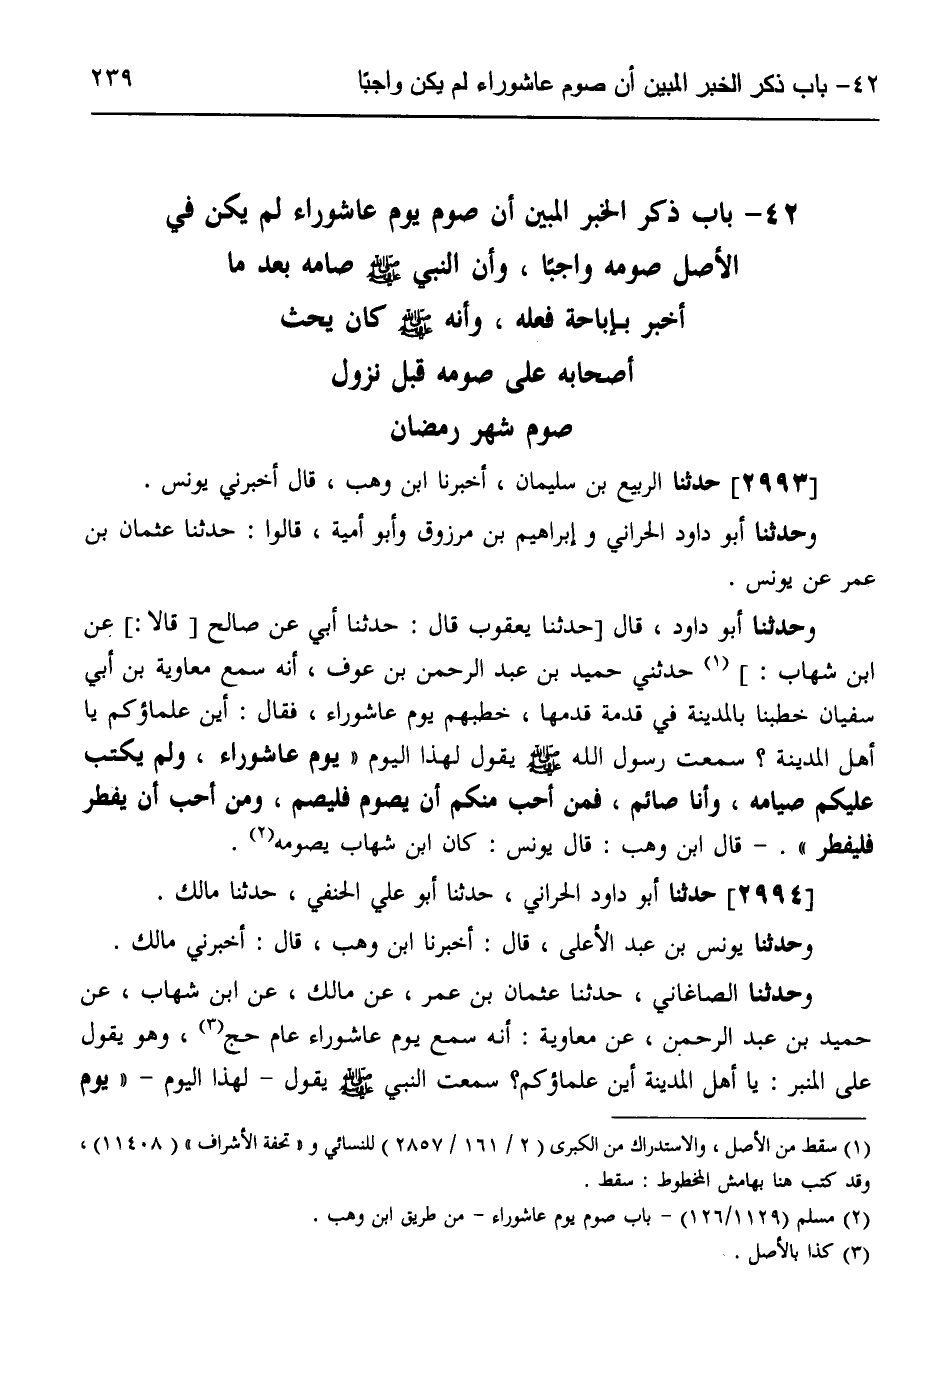 ٤٢- باب ذكر الخبر المبين أن صوم عاشوراء لم يكن واجبًا ٢٣٩
٤٢- باب ذكر الخبر المبين أن صوم يوم عاشوراء لم يكن في
الأصل صومه واجبًا ، وأن النبي ﷺ صامه بعد ما
أخبر بإباحة فعله ، وأنه ﷺ كان يحث
أصحابه على صومه قبل نزول
صوم شهر رمضان
[٢٩٩٣] حدثنا الربيع بن سليمان ، أخبرنا ابن وهب ، قال أخبرني يونس .
وحدثنا أبو داود الحراني و إبراهيم بن مرزوق وأبو أمية ، قالوا : حدثنا عثمان بن
عمر عن يونس .
وحدثنا أبو داود ، قال [حدثنا يعقوب قال : حدثنا أبي عن صالح [ قالا :] عن
ابن شهاب : ] (١) حدثني حميد بن عبد الرحمن بن عوف ، أنه سمع معاوية بن أبي
سفيان خطبنا بالمدينة في قدمة قدمها ، خطبهم يوم عاشوراء ، فقال : أين علماؤكم يا
أهل المدينة ؟ سمعت رسول الله ﷺ يقول لهذا اليوم « يوم عاشوراء ، ولم يكتب
عليكم صيامه ، وأنا صائم ، فمن أحب منكم أن يصوم فليصم ، ومن أحب أن يفطر
فليفطر » . - قال ابن وهب : قال يونس : كان ابن شهاب يصومه(٢) .
[٢٩٩٤] حدثنا أبو داود الحراني ، حدثنا أبو علي الحنفي ، حدثنا مالك .
وحدثنا يونس بن عبد الأعلى ، قال : أخبرنا ابن وهب ، قال : أخبرني مالك .
وحدثنا الصاغاني ، حدثنا عثمان بن عمر ، عن مالك ، عن ابن شهاب ، عن
حميد بن عبد الرحمن ، عن معاوية : أنه سمع يوم عاشوراء عام حج(٣) ، وهو يقول
على المنبر : يا أهل المدينة أين علماؤكم؟ سمعت النبي ﷺ يقول - لهذا اليوم - « يوم
(١) سقط من الأصل ، والاستدراك من الكبرى ( ٢ / ١٦١ / ٢٨٥٧ ) للنسائي و « تحفة الأشراف » ( ١١٤٠٨) ،
وقد كتب هنا بهامش المخطوط : سقط .
(٢) مسلم (١٢٦/١١٢٩) - باب صوم يوم عاشوراء - من طريق ابن وهب .
(٣) كذا بالأصل .